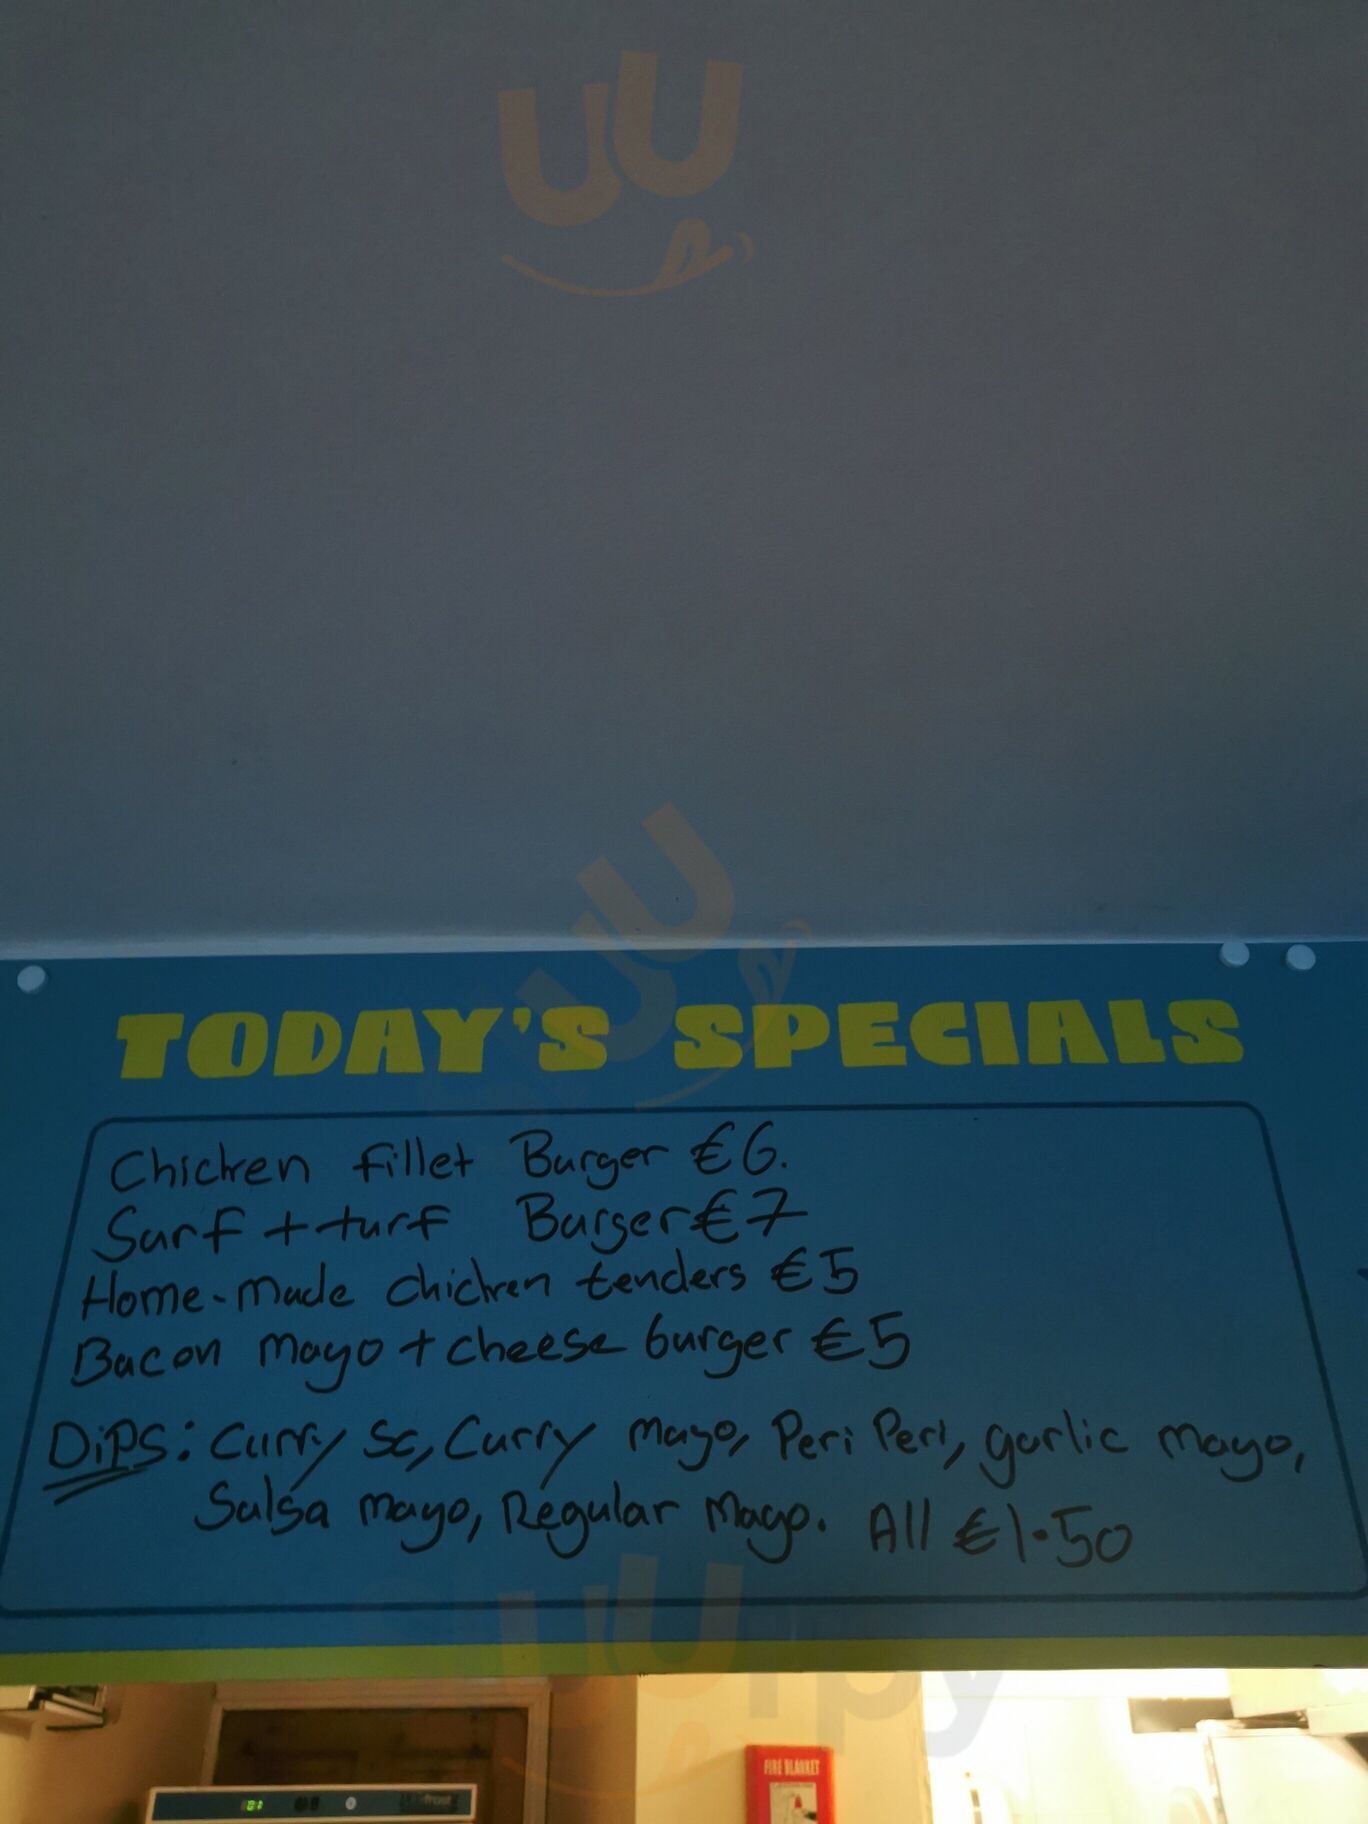 TODAY'S SPECIALS
Chicken fillet Burger €6.
Surf + turf Burger €7
Home-made chicken tenders €5
Bacon mayo + cheese burger €5
DiPS: Curry Sc, Curry mayo, Peri Peri, garlic mayo,
Salsa mayo, Regular Mayo. All €1.50
FIRE BLANKET